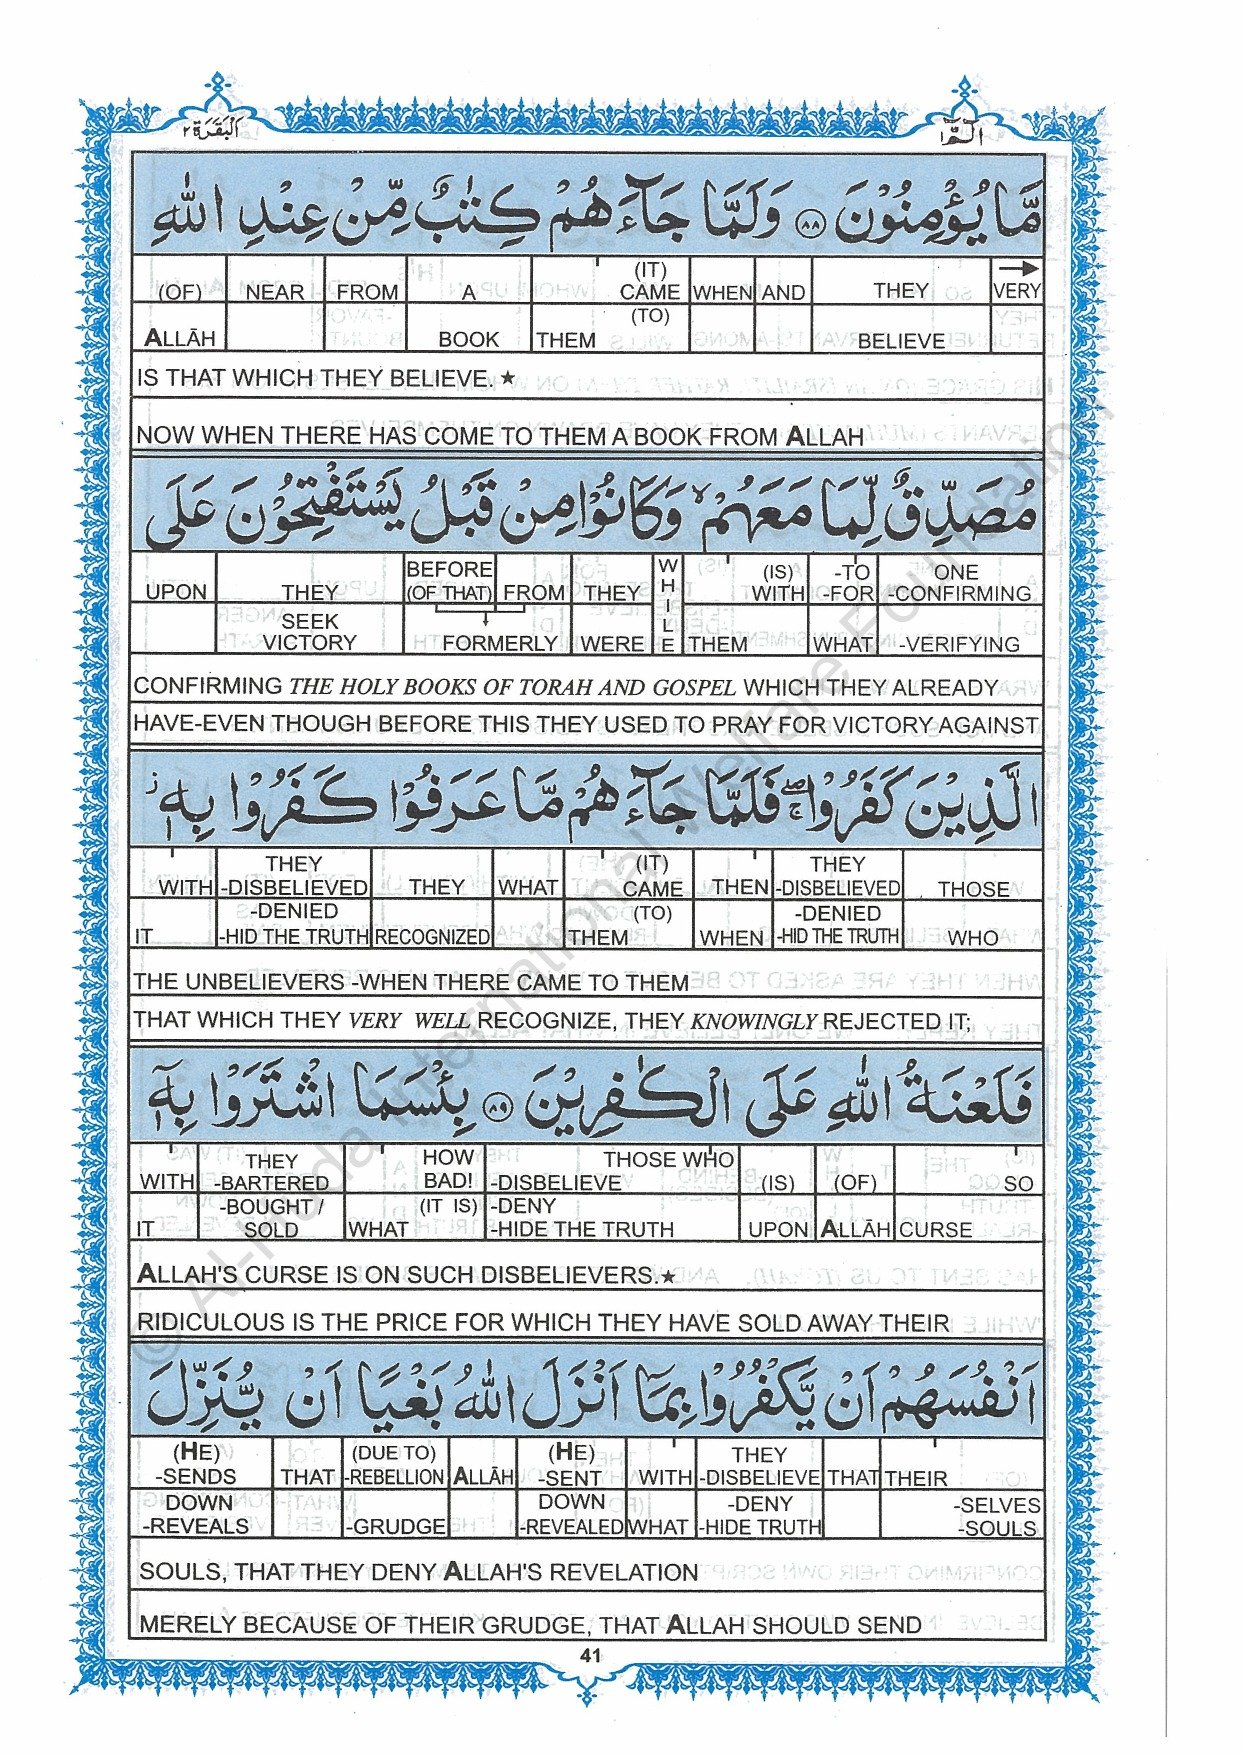 اَلْبَقَرَة ٢
الٓمّٓ ١
مَّا يُؤْمِنُوْنَ ۝٨٨ وَلَمَّا جَآءَهُمْ كِتٰبٌ مِّنْ عِنْدِ اللّٰهِ
(OF) NEAR FROM A (IT) CAME WHEN AND THEY VERY
ALLĀH BOOK THEM (TO) BELIEVE
IS THAT WHICH THEY BELIEVE.★
NOW WHEN THERE HAS COME TO THEM A BOOK FROM ALLAH
مُصَدِّقٌ لِّمَا مَعَهُمْ ۙ وَكَانُوْا مِنْ قَبْلُ يَسْتَفْتِحُوْنَ عَلَى
UPON THEY BEFORE (OF THAT) FROM THEY WHILE (IS) WITH -TO -FOR ONE -CONFIRMING
SEEK VICTORY FORMERLY WERE THEM WHAT -VERIFYING
CONFIRMING THE HOLY BOOKS OF TORAH AND GOSPEL WHICH THEY ALREADY
HAVE-EVEN THOUGH BEFORE THIS THEY USED TO PRAY FOR VICTORY AGAINST
الَّذِيْنَ كَفَرُوْا ۖۚ فَلَمَّا جَآءَهُمْ مَّا عَرَفُوْا كَفَرُوْا بِهٖ ۡ
WITH THEY -DISBELIEVED THEY WHAT (IT) CAME THEN THEY -DISBELIEVED THOSE
IT -DENIED -HID THE TRUTH RECOGNIZED THEM (TO) WHEN -DENIED -HID THE TRUTH WHO
THE UNBELIEVERS -WHEN THERE CAME TO THEM
THAT WHICH THEY VERY WELL RECOGNIZE, THEY KNOWINGLY REJECTED IT;
فَلَعْنَةُ اللّٰهِ عَلَى الْكٰفِرِيْنَ ۝٨٩ بِئْسَمَا اشْتَرَوْا بِهٖٓ
WITH THEY -BARTERED HOW BAD! THOSE WHO -DISBELIEVE (IS) (OF) SO
IT -BOUGHT / SOLD WHAT (IT IS) -DENY -HIDE THE TRUTH UPON ALLĀH CURSE
ALLAH'S CURSE IS ON SUCH DISBELIEVERS.★
RIDICULOUS IS THE PRICE FOR WHICH THEY HAVE SOLD AWAY THEIR
اَنْفُسَهُمْ اَنْ يَّكْفُرُوْا بِمَآ اَنْزَلَ اللّٰهُ بَغْيًا اَنْ يُّنَزِّلَ
(HE) -SENDS THAT (DUE TO) -REBELLION ALLĀH (HE) -SENT WITH THEY -DISBELIEVE THAT THEIR
DOWN -REVEALS -GRUDGE DOWN -REVEALED WHAT -DENY -HIDE TRUTH -SELVES -SOULS
SOULS, THAT THEY DENY ALLAH'S REVELATION
MERELY BECAUSE OF THEIR GRUDGE, THAT ALLAH SHOULD SEND
41
© Al-Huda International Welfare Foundation